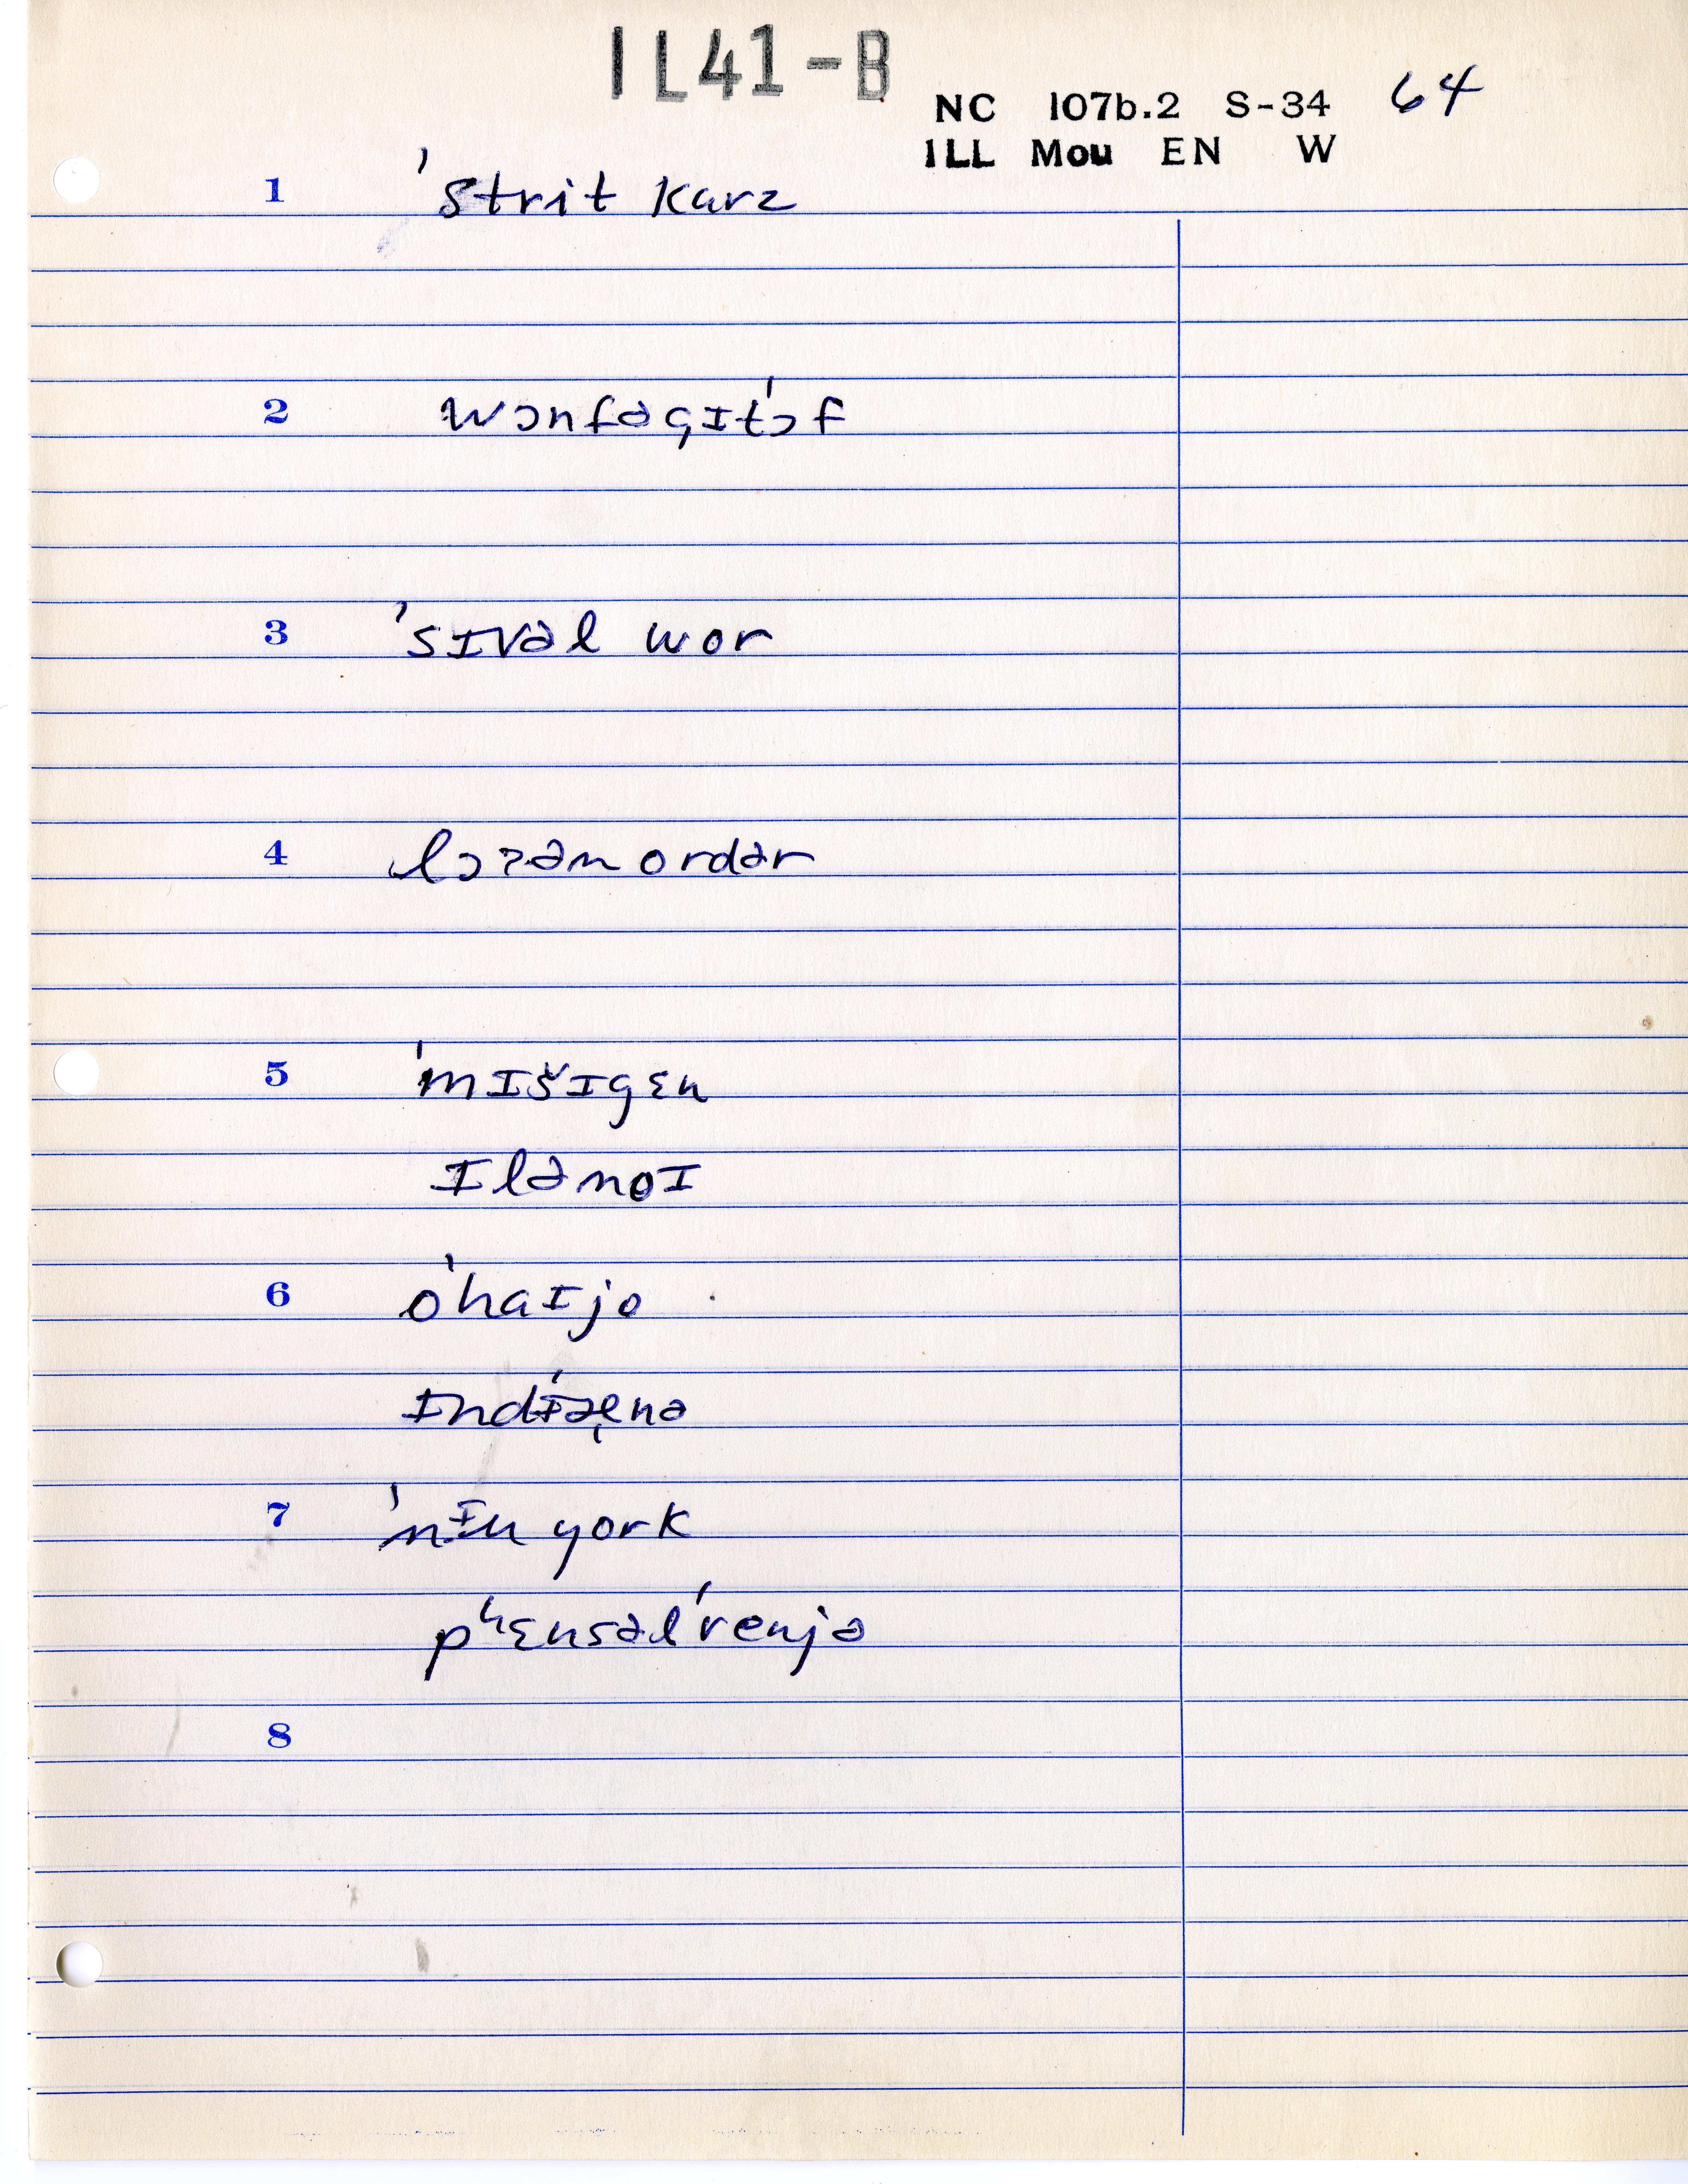 IL41-B
NC 107b.2 S-34 64
ILL Mou EN W
1 'strit karz
2 wɔnfəgɪt'ɔf
3 'sɪvəl wor
4 lɔʔən ordər
5 'mɪšɪgɛn
ɪlənoɪ
6 o'haɪjo
ɪndɪ́æ̨nə
7 'nɪu york
pʰɛnsəl'venjə
8